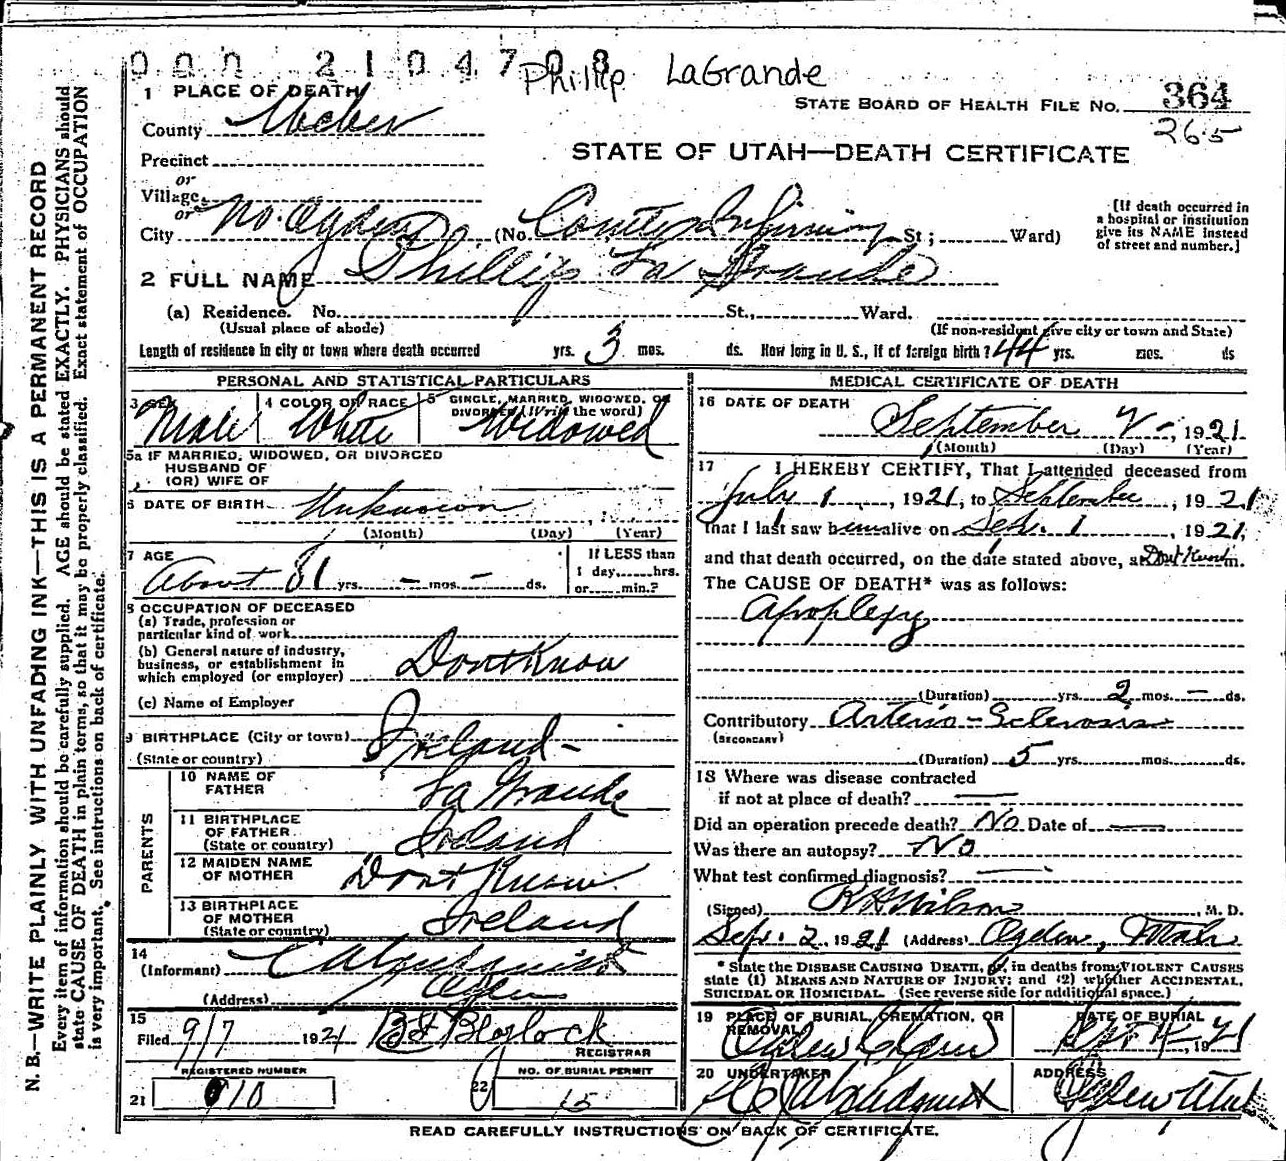 000 2104708
Phillip LaGrande
1 PLACE OF DEATH
STATE BOARD OF HEALTH FILE NO. 364
265
County Weber
Precinct
STATE OF UTAH—DEATH CERTIFICATE
or
Village
or
City No. Ogden (No. County Infirmary St; Ward)
[If death occurred in
a hospital or institution
give its NAME instead
of street and number.]
2 FULL NAME Phillip La Grande
(a) Residence. No. St., Ward.
(Usual place of abode)
(If non-resident give city or town and State)
Length of residence in city or town where death occurred yrs. 3 mos. ds. How long in U. S., if of foreign birth? 44 yrs. mos. ds
PERSONAL AND STATISTICAL PARTICULARS
3 SEX Male
4 COLOR OR RACE White
5 SINGLE, MARRIED, WIDOWED, OR
DIVORCED (Write the word)
Widowed
5a IF MARRIED, WIDOWED, OR DIVORCED
HUSBAND OF
(OR) WIFE OF
6 DATE OF BIRTH Unknown
(Month) (Day) (Year)
7 AGE
About 81 yrs. — mos. — ds.
If LESS than
1 day, hrs.
or min.?
8 OCCUPATION OF DECEASED
(a) Trade, profession or
particular kind of work
(b) General nature of industry,
business, or establishment in
which employed (or employer) Dont Know
(c) Name of Employer
9 BIRTHPLACE (City or town)
(State or country) Ireland —
PARENTS
10 NAME OF
FATHER La Grande
11 BIRTHPLACE
OF FATHER
(State or country) Ireland
12 MAIDEN NAME
OF MOTHER Dont Know.
13 BIRTHPLACE
OF MOTHER
(State or country) Ireland
14
(Informant)
(Address) Ogden
15
Filed 9/7 1921
REGISTRAR
REGISTERED NUMBER
21 910
NO. OF BURIAL PERMIT
22 15
MEDICAL CERTIFICATE OF DEATH
16 DATE OF DEATH
September 2 -, 1921
(Month) (Day) (Year)
17 I HEREBY CERTIFY, That I attended deceased from
July 1, 1921, to September, 1921
that I last saw him alive on Sept. 1, 1921,
and that death occurred, on the date stated above, at Dont Know m.
The CAUSE OF DEATH* was as follows:
Apoplexy
(Duration) yrs. 2 mos. — ds.
Contributory Arterio-Sclerosis
(SECONDARY)
(Duration) 5 yrs. mos. ds.
18 Where was disease contracted
if not at place of death? —
Did an operation precede death? No Date of —
Was there an autopsy? No
What test confirmed diagnosis? —
(Signed) Wilson, M. D.
Sept. 2, 1921 (Address) Ogden, Utah
* State the DISEASE CAUSING DEATH, or, in deaths from VIOLENT CAUSES
state (1) MEANS AND NATURE OF INJURY; and (2) whether ACCIDENTAL,
SUICIDAL OR HOMICIDAL. (See reverse side for additional space.)
19 PLACE OF BURIAL, CREMATION, OR
REMOVAL
Ogden
DATE OF BURIAL
Sept 4, 1921
20 UNDERTAKER
ADDRESS
Ogden Utah
READ CAREFULLY INSTRUCTIONS ON BACK OF CERTIFICATE.
N. B.—WRITE PLAINLY WITH UNFADING INK—THIS IS A PERMANENT RECORD
Every item of information should be carefully supplied. AGE should be stated EXACTLY. PHYSICIANS should
state CAUSE OF DEATH in plain terms, so that it may be properly classified. Exact statement of OCCUPATION
is very important. See instructions on back of certificate.